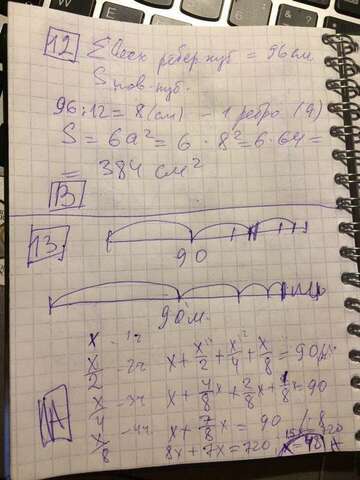 12 Σ всех ребер куб = 96 см
S пов. куб.
96:12 = 8 (см) – 1 ребро (a)
S = 6a² = 6 · 8² = 6·64 =
= 384 см²
B
13.
90
90 м
x – 1ч
x/2 – 2ч x + x/2 + x/4 + x/8 = 90
x/4 – 3ч x + 4/8 x + 2/8 x + 1/8 x = 90
A x/8 – 4ч x + 7/8 x = 90 /·8
8x + 7x = 720 15x = 720
x = 48 A